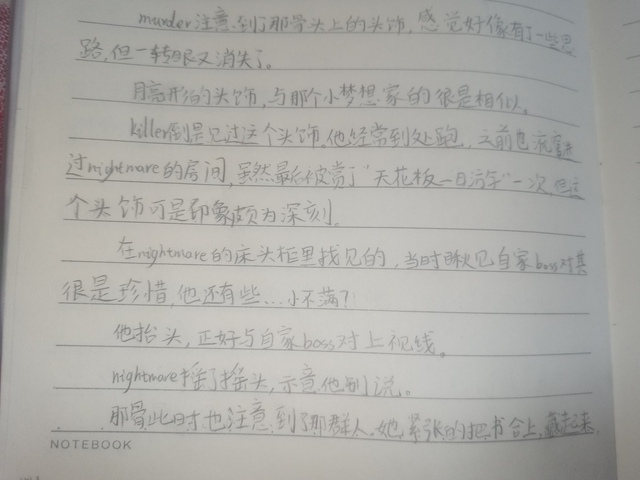 murder注意到了那骨头上的头饰,感觉好像有了一些思
路,但一转眼又消失了。
月亮形的头饰,与那个小梦想家的很是相似。
killer倒是见过这个头饰,他经常到处跑,之前也流窜进
过nightmare的房间,虽然最后被赏了“天花板一日游”一次,但这
个头饰可是印象颇为深刻。
在nightmare的床头柜里找见的,当时瞅见自家boss对其
很是珍惜,他还有些...小不满?
他抬头,正好与自家boss对上视线。
nightmare摇了摇头,示意他别说。
那骨此时也注意到了那群人,她紧张的把书合上,藏起来
NOTEBOOK